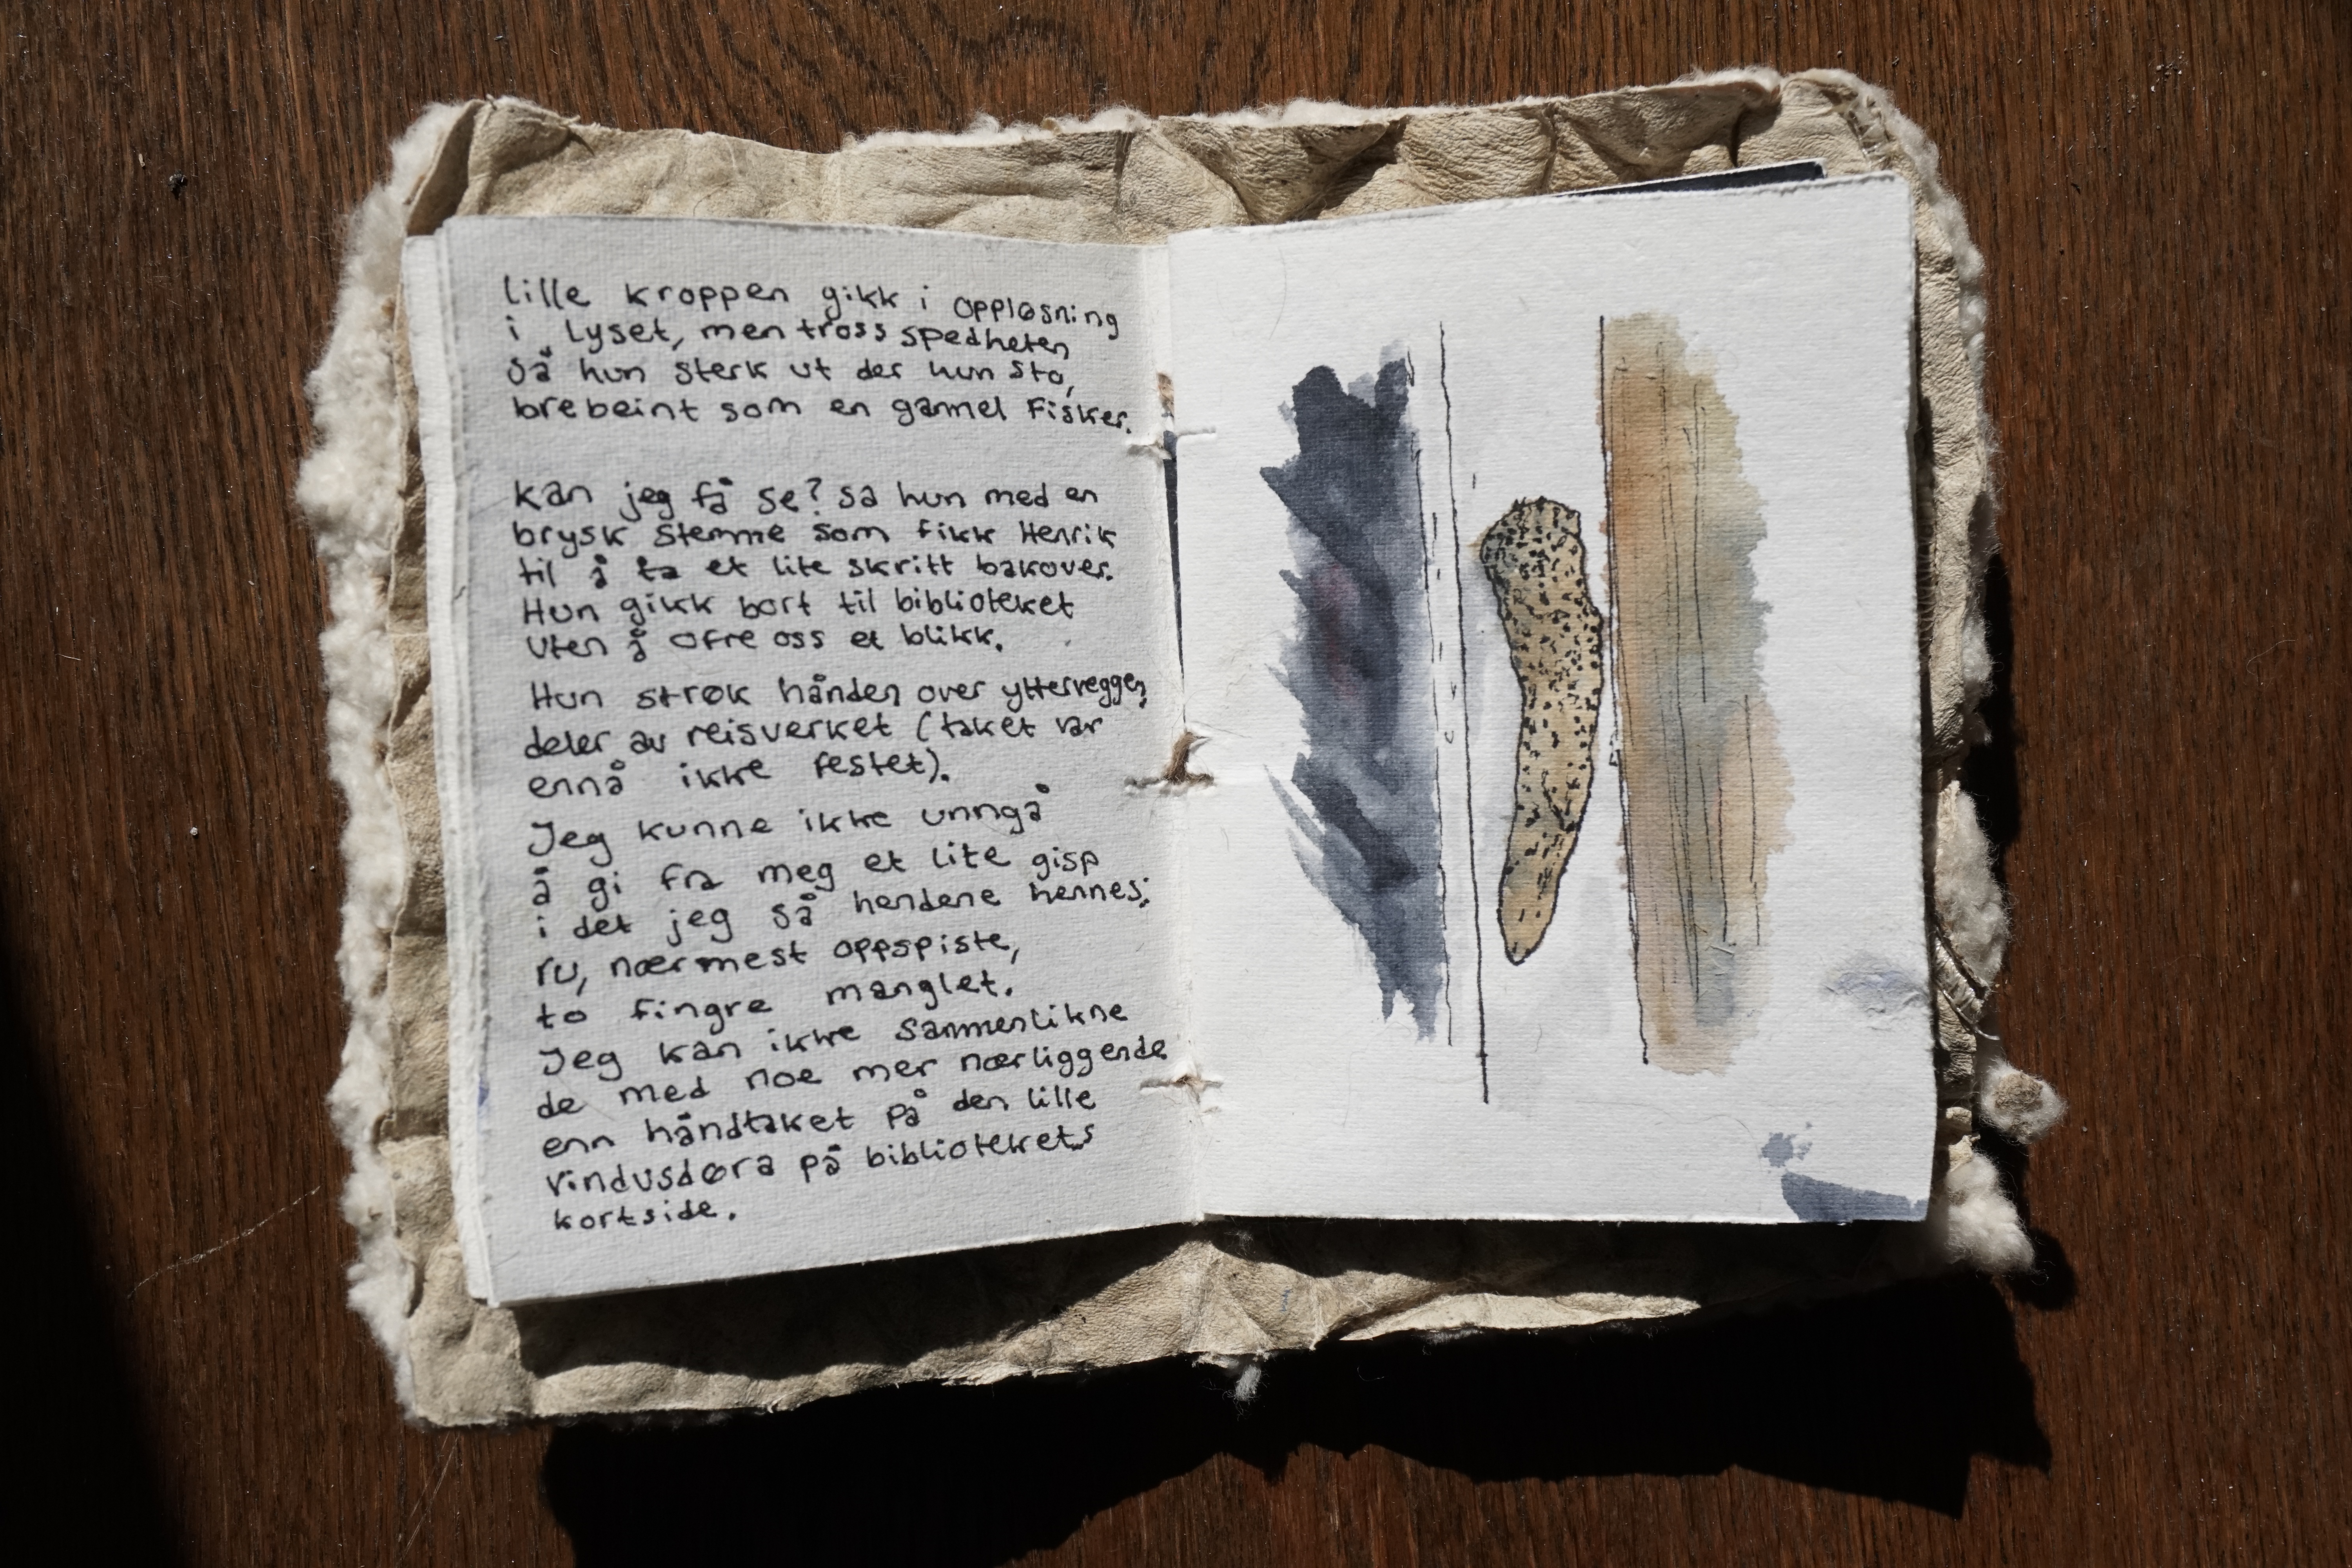 lille kroppen gikk i oppløsning
i lyset, men tross spedheten
så hun sterk ut der hun sto,
brebeint som en gammel fisker.
Kan jeg få se? sa hun med en
brysk stemme som fikk Henrik
til å ta et lite skritt bakover.
Hun gikk bort til biblioteket
uten å ofre oss et blikk.
Hun strøk hånden over ytterveggen,
deler av reisverket (taket var
ennå ikke festet).
Jeg kunne ikke unngå
å gi fra meg et lite gisp
i det jeg så hendene hennes;
ru, nærmest oppspiste,
to fingre manglet.
Jeg kan ikke sammenlikne
de med noe mer nærliggende
enn håndtaket på den lille
vindusdøra på bibliotekets
kortside.